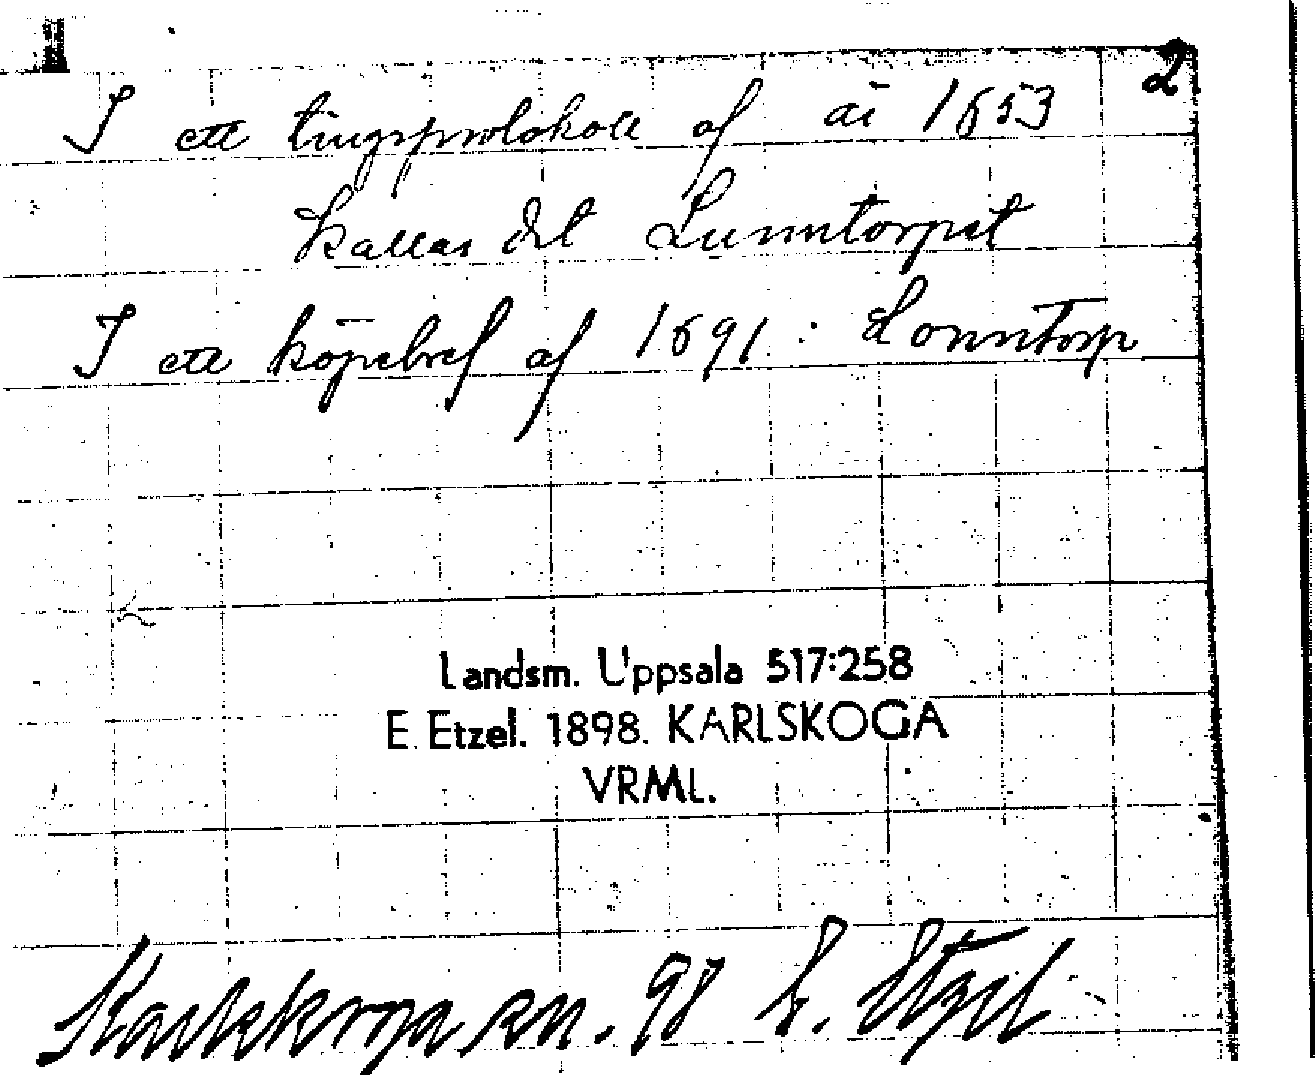 2
I ett tingsprotokoll af år 1653
kallas det Lunntorpet
I ett köpebref af 1691 : Lonntorp
Landsm. Uppsala 517:258
E. Etzel. 1898. KARLSKOGA
VRML.
Karlskoga sn. 98 E. Etzel